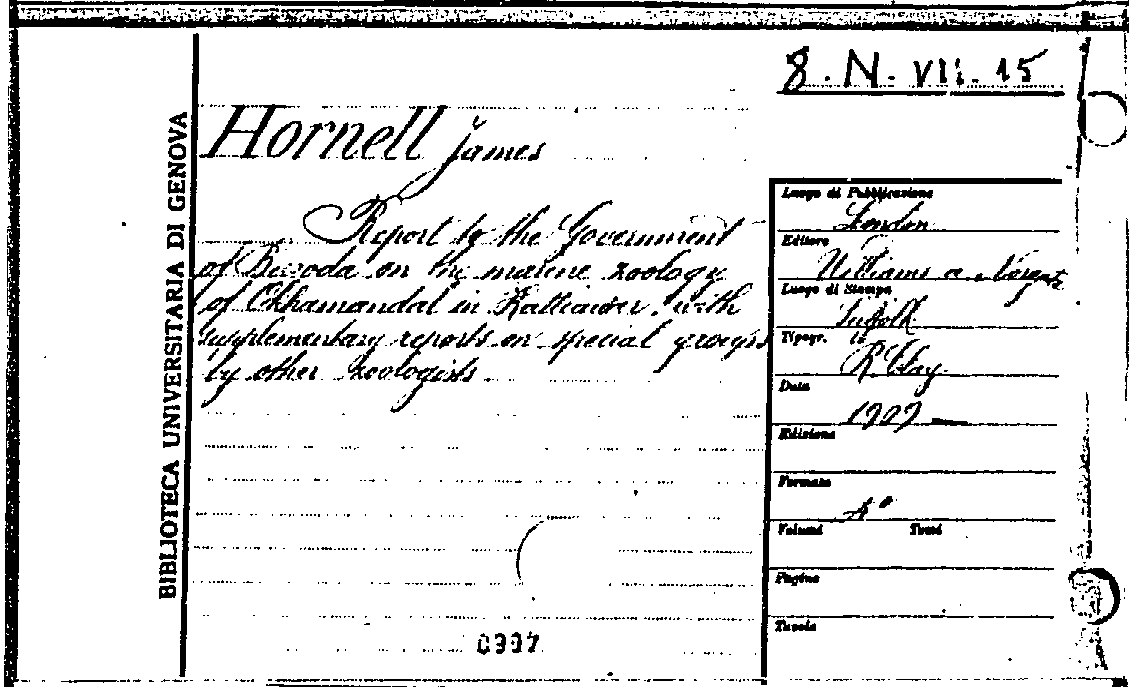 8. N. VII. 15
BIBLIOTECA UNIVERSITARIA DI GENOVA
Hornell James
Report to the Government
of Baroda on the marine zoology
of Okhamandal in Kattiawar, with
supplementary reports on special groups
by other zoologists
Luogo di Pubblicazione
London
Editore
Williams a. Norgate
Luogo di Stampa
Suffolk
Tipogr.
R. Clay
Data
1909
Edizione
Formato
4°
Volumi Tomi
Pagine
Tavole
0997